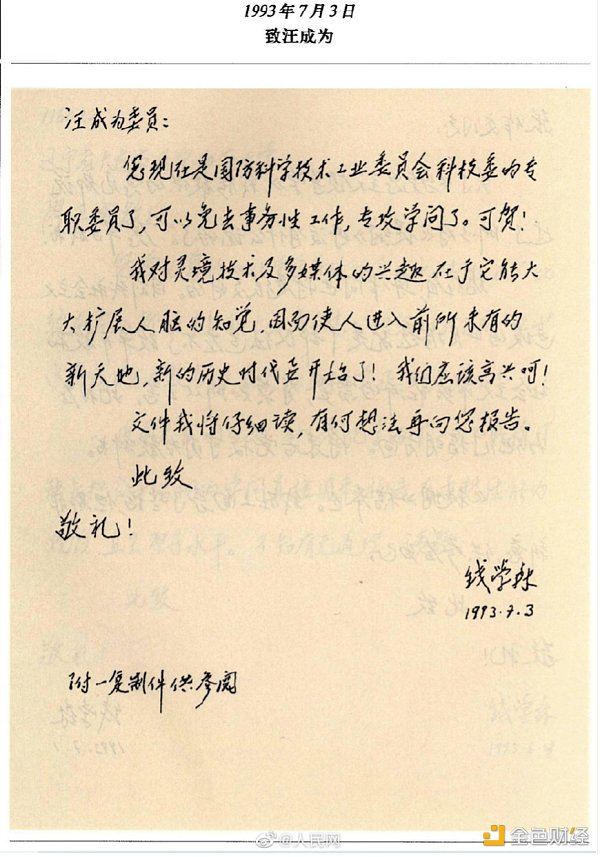 1993年7月3日
致汪成为
汪成为委员：
您现在是国防科学技术工业委员会科技委的专
职委员了，可以免去事务性工作，专攻学问了。可贺！
我对灵境技术及多媒体的兴趣在于它能大
大扩展人脑的知觉，因而使人进入前所未有的
新天地，新的历史时代要开始了！我们应该高兴呵！
文件我将仔细读，有何想法再向您报告。
此致
敬礼！
钱学森
1993.7.3
附一复制件供参阅
@人民网
金色财经